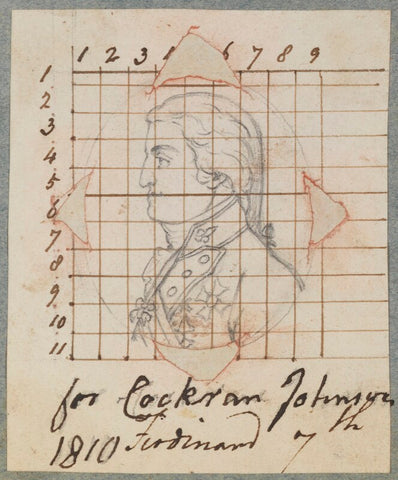 1 2 3 4 6 7 8 9
1
2
3
4
5
6
7
8
9
10
11
for Cockran Johnson
1810 Ferdinand 7th